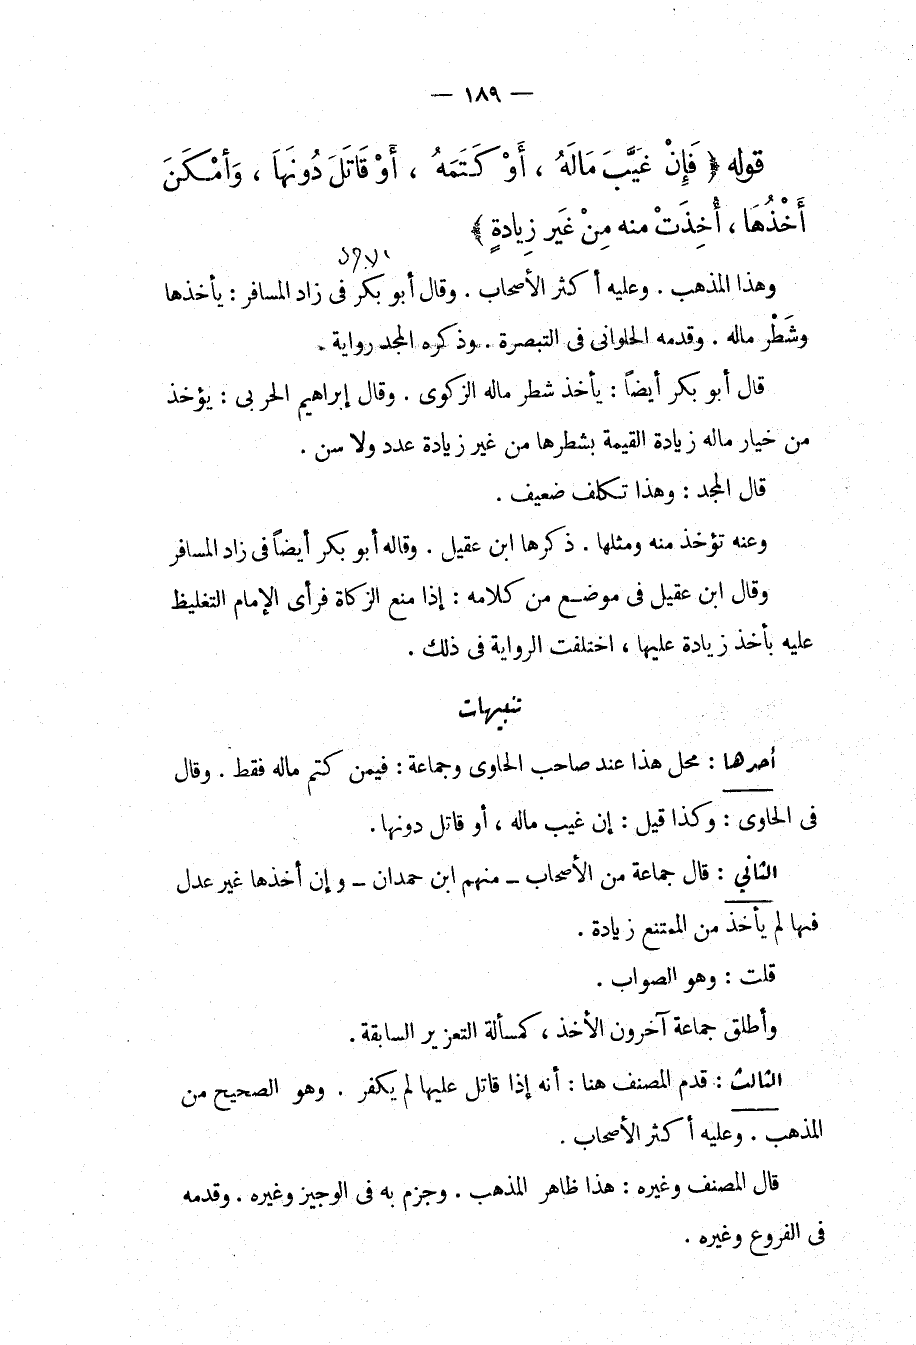 — ١٨٩ —
قوله ﴿ فَإِنْ غَيَّبَ مَالَهُ ، أَوْ كَتَمَهُ ، أَوْ قَاتَلَ دُونَهَا ، وَأَمْكَنَ
أَخْذُهَا ، أُخِذَتْ منه مِنْ غَيرِ زِيادةٍ ﴾
وهذا المذهب . وعليه أكثر الأصحاب . وقال أبو بكر فى زاد المسافر : يأخذها
وشَطْر ماله . وقدمه الحلوانى فى التبصرة . وذكره المجد رواية .
قال أبو بكر أيضاً : يأخذ شطر ماله الزكوى . وقال إبراهيم الحربى : يؤخذ
من خيار ماله زيادة القيمة بشطرها من غير زيادة عدد ولا سن .
قال المجد : وهذا تكلف ضعيف .
وعنه تؤخذ منه ومثلها . ذكرها ابن عقيل . وقاله أبو بكر أيضاً فى زاد المسافر
وقال ابن عقيل فى موضع من كلامه : إذا منع الزكاة فرأى الإمام التغليظ
عليه بأخذ زيادة عليها ، اختلفت الرواية فى ذلك .
تنبيهات
أحدها : محل هذا عند صاحب الحاوى وجماعة : فيمن كتم ماله فقط . وقال
فى الحاوى : وكذا قيل : إن غيب ماله ، أو قاتل دونها .
الثاني : قال جماعة من الأصحاب ــ منهم ابن حمدان ــ وإن أخذها غير عدل
فيها لم يأخذ من الممتنع زيادة .
قلت : وهو الصواب .
وأطلق جماعة آخرون الأخذ ، كمسألة التعزير السابقة .
الثالث : قدم المصنف هنا : أنه إذا قاتل عليها لم يكفر . وهو الصحيح من
المذهب . وعليه أكثر الأصحاب .
قال المصنف وغيره : هذا ظاهر المذهب . وجزم به فى الوجيز وغيره . وقدمه
فى الفروع وغيره .